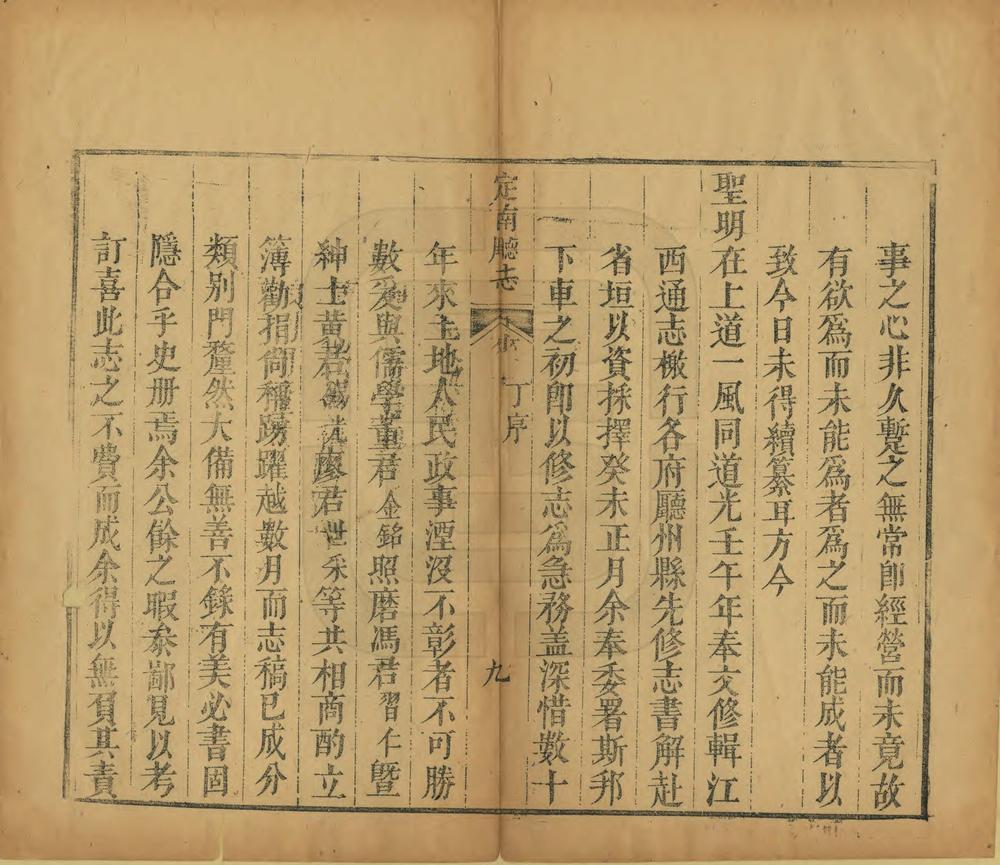 事之心非久蹔之無常卽經營而未竟故
有欲爲而未能爲者爲之而未能成者以
致今日未得續纂耳方今
聖明在上道一風同道光壬午年奉文修輯江
西通志檄行各府廳州縣先修志書解赴
省垣以資採擇癸未正月余奉委署斯邦
下車之初卽以修志爲急務盖深惜數十
定南廳志
丁序
九
年來土地人民政事湮沒不彰者不可勝
數爰與儒學董君金銘照磨馮君習仁曁
紳士黃君廖君世采等共相商酌立
簿勸捐尙稱踴躍越數月而志稿已成分
類別門釐然大備無善不錄有美必書固
隱合乎史册焉余公餘之暇叅鄙見以考
訂喜此志之不費而成余得以無負其責